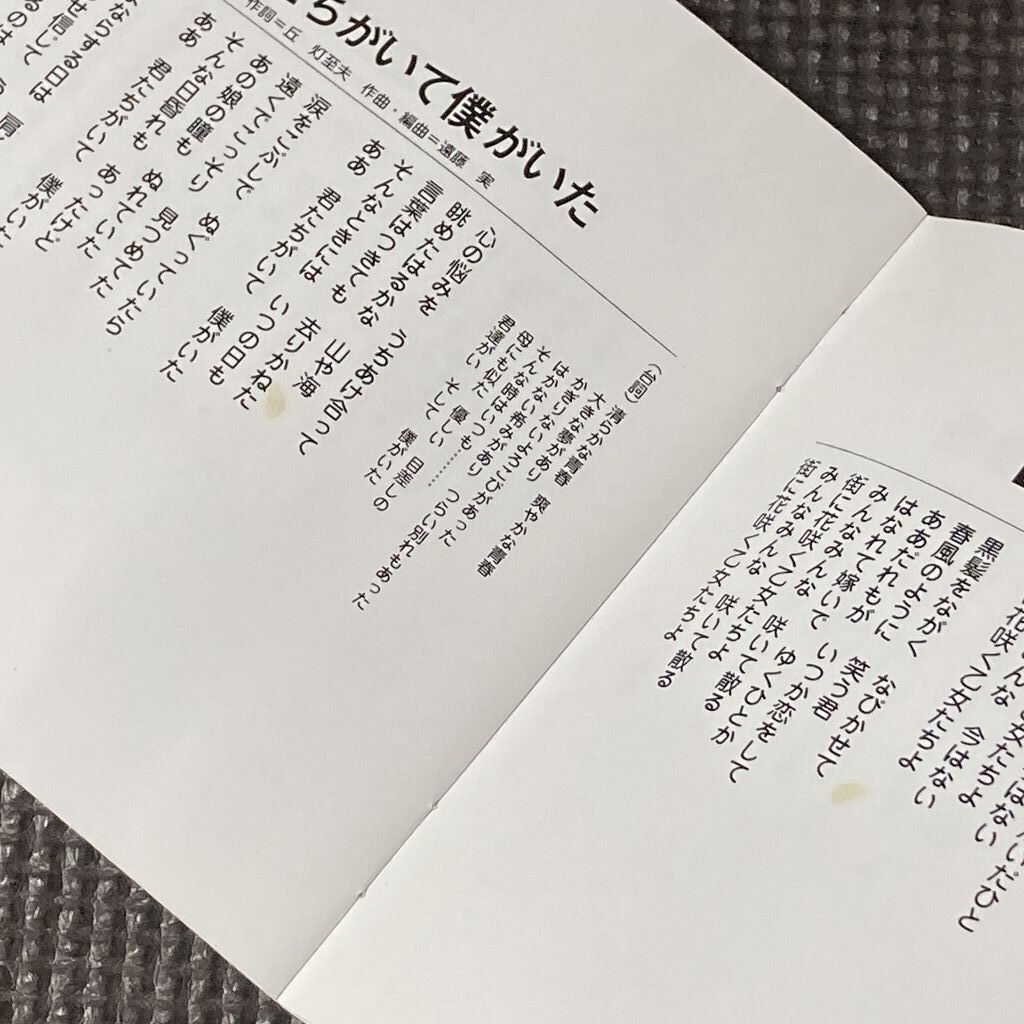 ちがいて僕がいた
作詞＝丘 灯至夫 作曲・編曲＝遠藤 実
（台詞）清らかな青春 爽やかな青春
大きな夢があり
かぎりないよろこびがあった
はかない希みがあり つらい別れもあった
そんな時はいつも……
母にも似た 優しい 目差しの
君達がい そして 僕がいた
心の悩みを うちあけ合って
眺めたはるかな 山や海
言葉はつきても 去りかねた
そんなときには いつの日も
ああ 君たちがいて 僕がいた
涙をこぶしで ぬぐっていたら
遠くでこっそり 見つめてた
あの娘の瞳も ぬれていた
そんな日昏れも あったけど
ああ 君たちがいて 僕がいた
ならする日は 肩
信じて
花咲く乙女たちよ
今はない
黒髪をながく なびかせて
春風のように 笑う君
ああだれもが いつか恋をして
はなれて嫁いで ゆくひとか
みんなみんな 咲いて散る
街に花咲く乙女たちよ
みんなみんな 咲いて散る
街に花咲く乙女たちよ